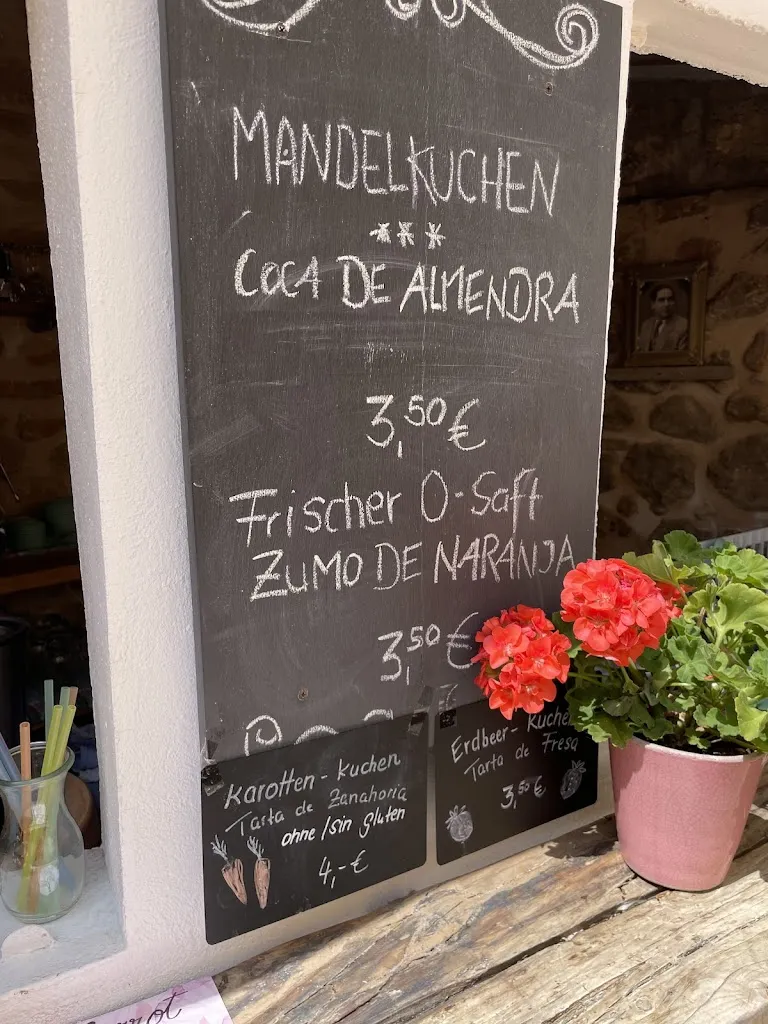 MANDELKUCHEN
***
COCA DE ALMENDRA
3,50€
Frischer O-Saft
ZUMO DE NARANJA
3,50€
Karotten-Kuchen
Tarta de Zanahoria
ohne/sin gluten
4,-€
Erdbeer-Kuchen
Tarta de Fresa
3,50€